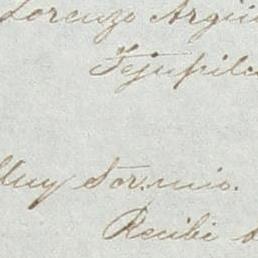 Lorenzo Argü
Tejupilc
Muy Sor. mio.
Recibi